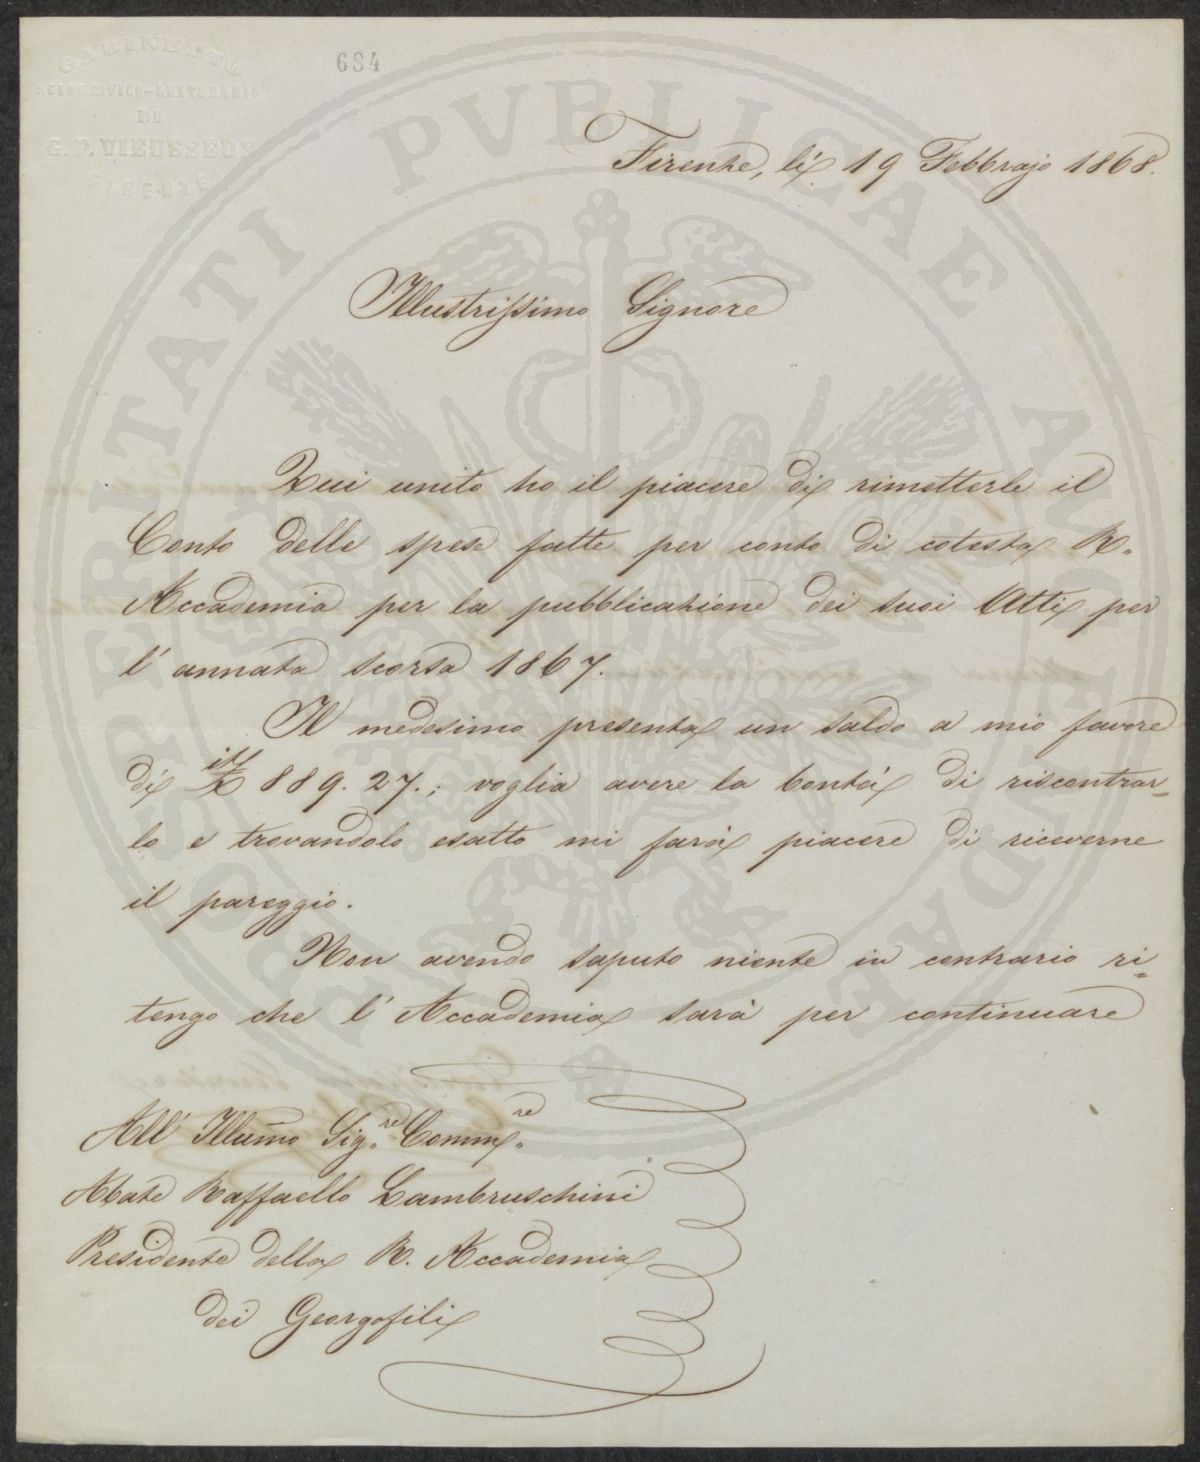 GABINETTO
SCIENTIFICO-LETTERARIO
DI
G. P. VIEUSSEUX
FIRENZE
684
PROSPERITATI PVBLICAE AVGENDAE
Firenze, lì 19 Febbrajo 1868.
Illustrissimo Signore
Qui unito ho il piacere di rimetterle il
Conto delle spese fatte per conto di cotesta R.
Accademia per la pubblicazione dei suoi Atti per
l'annata scorsa 1867.
Il medesimo presenta un saldo a mio favore
di it£ 889. 27.; voglia avere la bontà di riscontrar=
lo e trovandolo esatto mi farà piacere di riceverne
il pareggio.
Non avendo saputo niente in contrario ri=
tengo che l'Accademia sarà per continuare
All' Illumo Sig.re Comm.re
Abate Raffaello Lambruschini
Presidente della R. Accademia
dei Georgofili